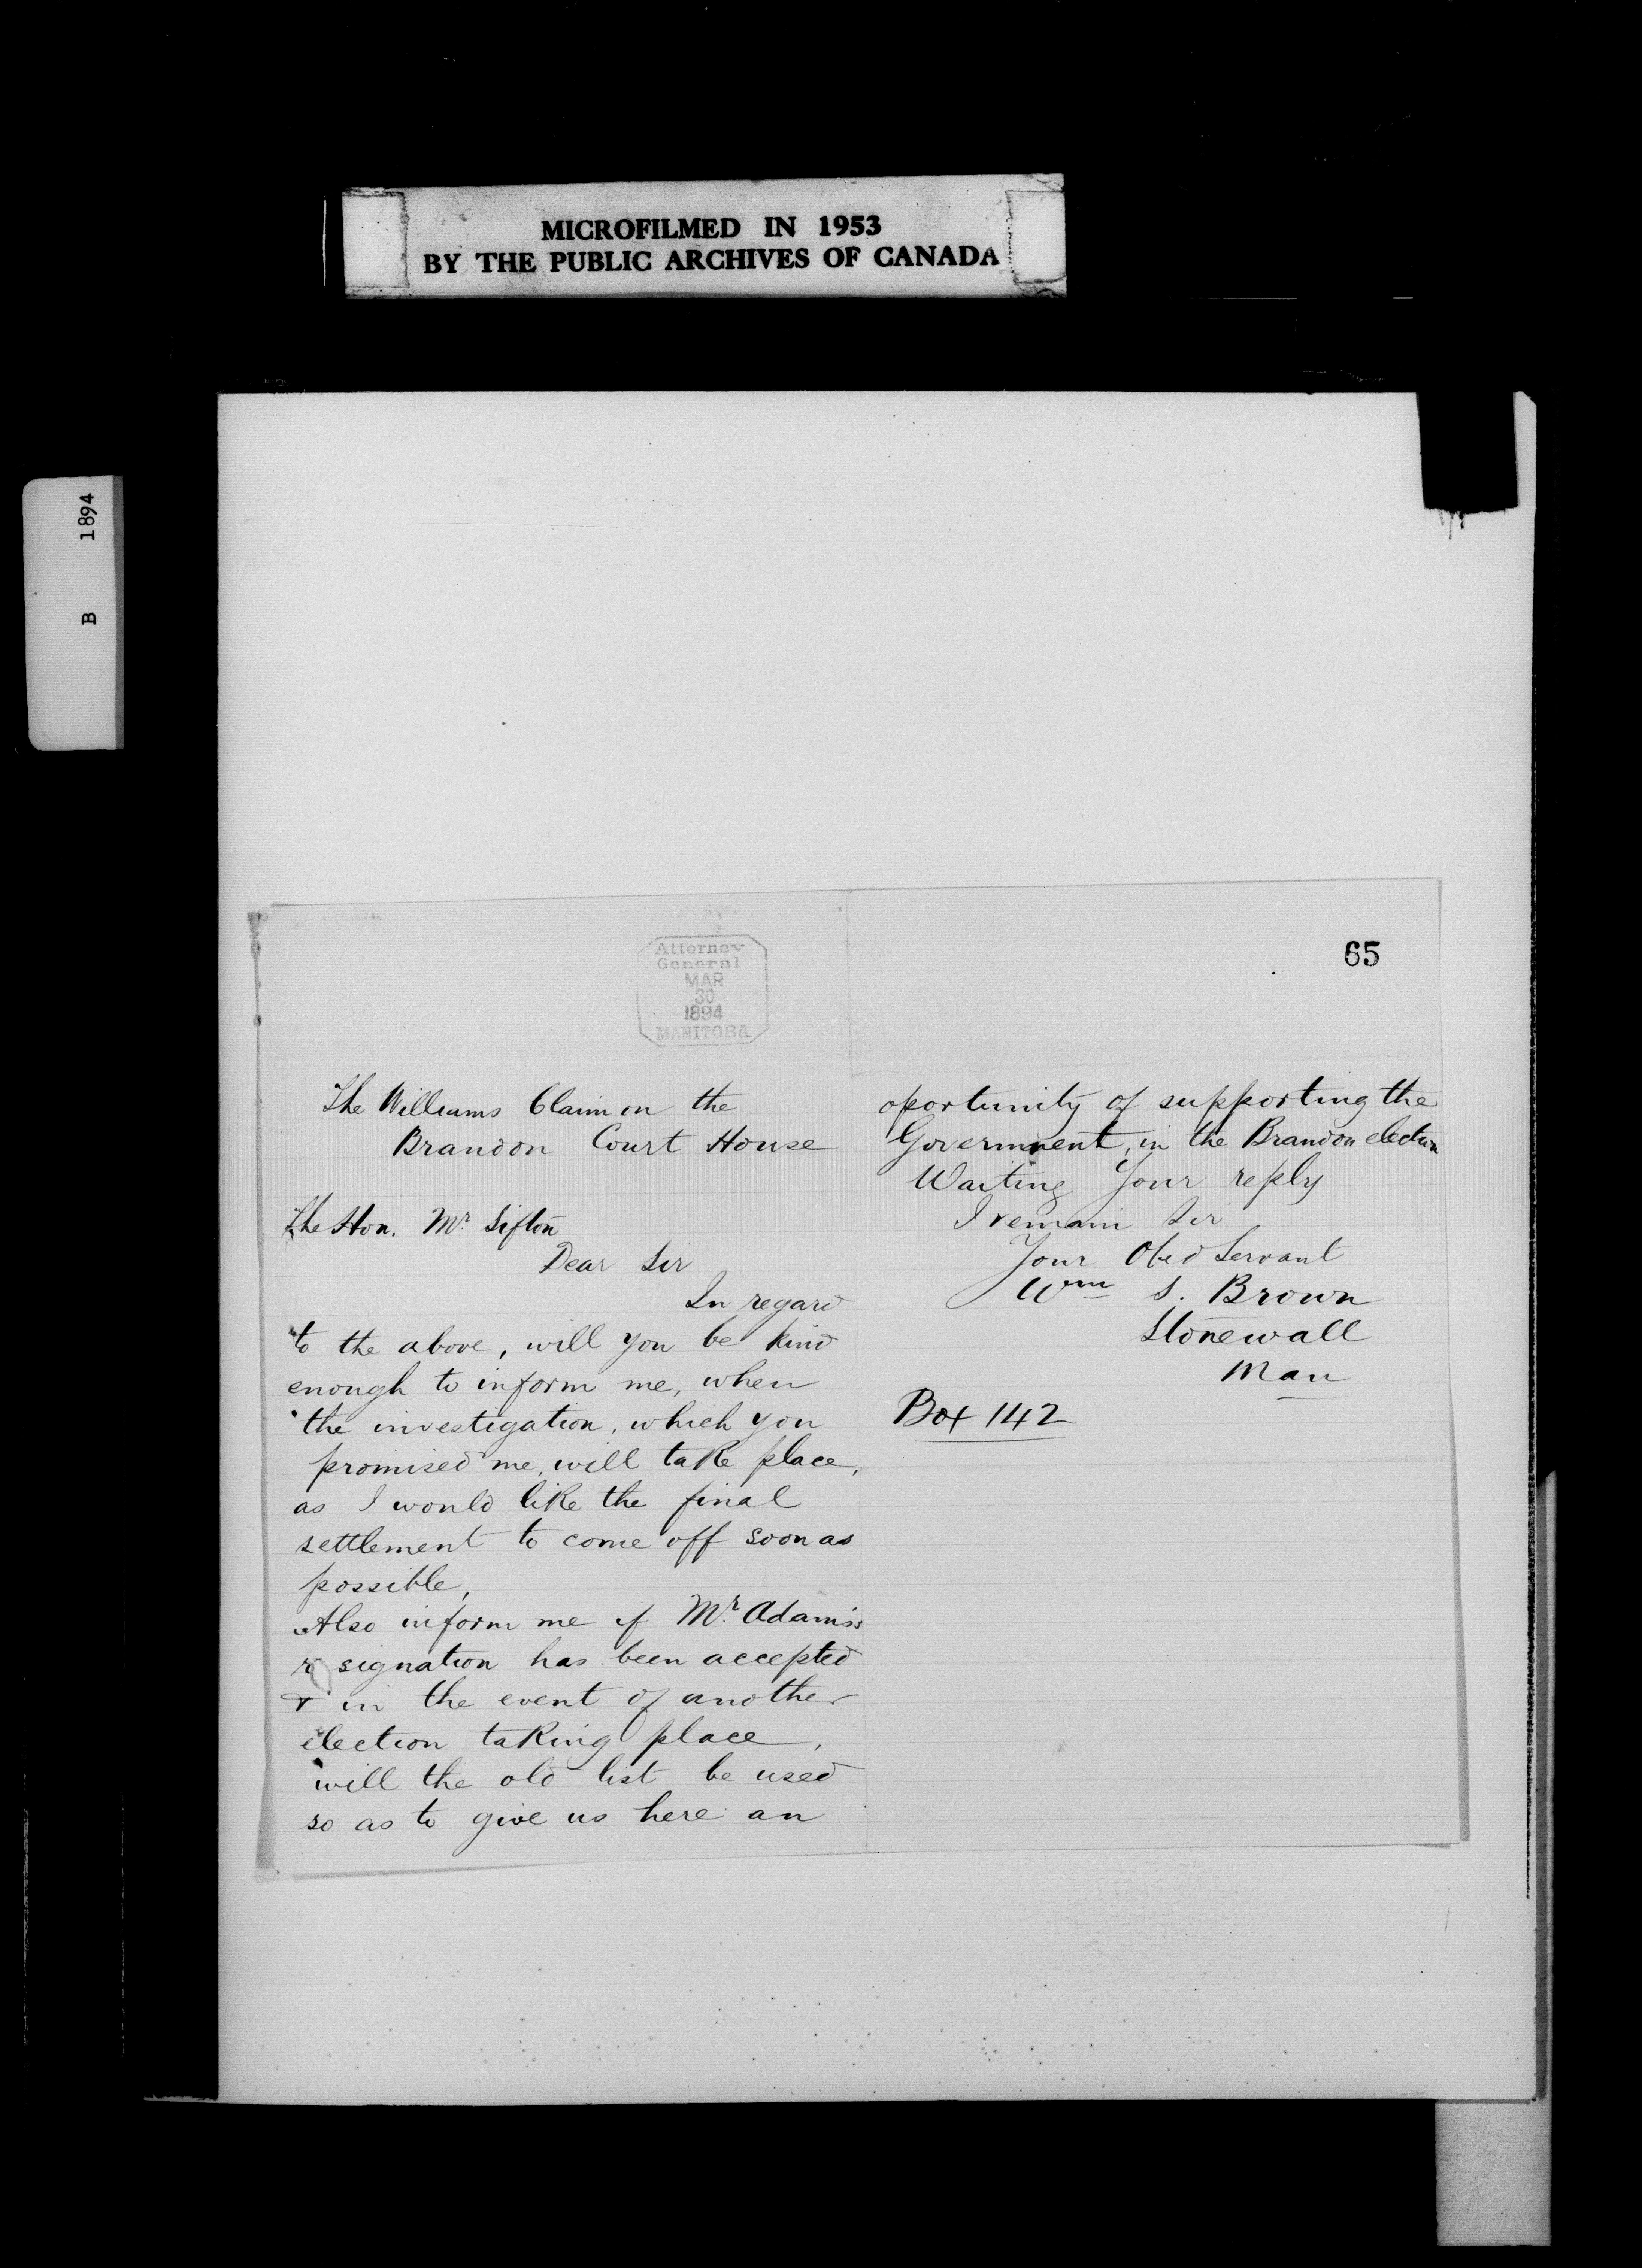 MICROFILMED IN 1953
BY THE PUBLIC ARCHIVES OF CANADA
B 1894
65
Attorney
General
MAR
30
1894
MANITOBA
The Williams Claim on the
Brandon Court House
The Hon. Mr. Sifton
Dear Sir
In regard
to the above, will you be kind
enough to inform me, when
the investigation, which you
promised me, will take place,
as I would like the final
settlement to come off soon as
possible,
Also inform me if Mr. Adams's
resignation has been accepted
& in the event of another
election taking place,
will the old list be used
so as to give us here an
oportunity of supporting the
Government, in the Brandon election
Waiting Your reply
I remain Sir
Your Obed Servant
Wm S. Brown
Stonewall
Man
Box 142